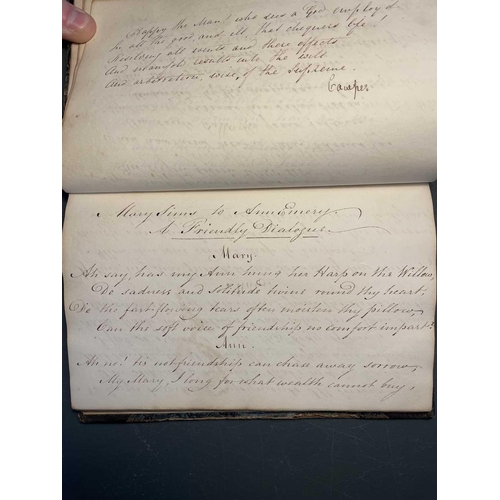 Happy the Man, who sees a God employ'd
In all the good and ill, that chequers life!
Resolving all events and there effects
And manifold results into the will
And arbitration, wise, of the Supreme.
Cowper
Mary Sims to Ann Emery.
A Friendly Dialogue.
Mary.
Ah say, has my Ann hung her Harp on the Willow,
Do sadness and solitude twine round thy heart;
Do the fast-flowing tears often moisten thy pillow,
Can the soft voice of friendship no comfort impart?
Ann.
Ah no! tis not friendship can chase away sorrow,
My Mary, I long for what wealth cannot buy,